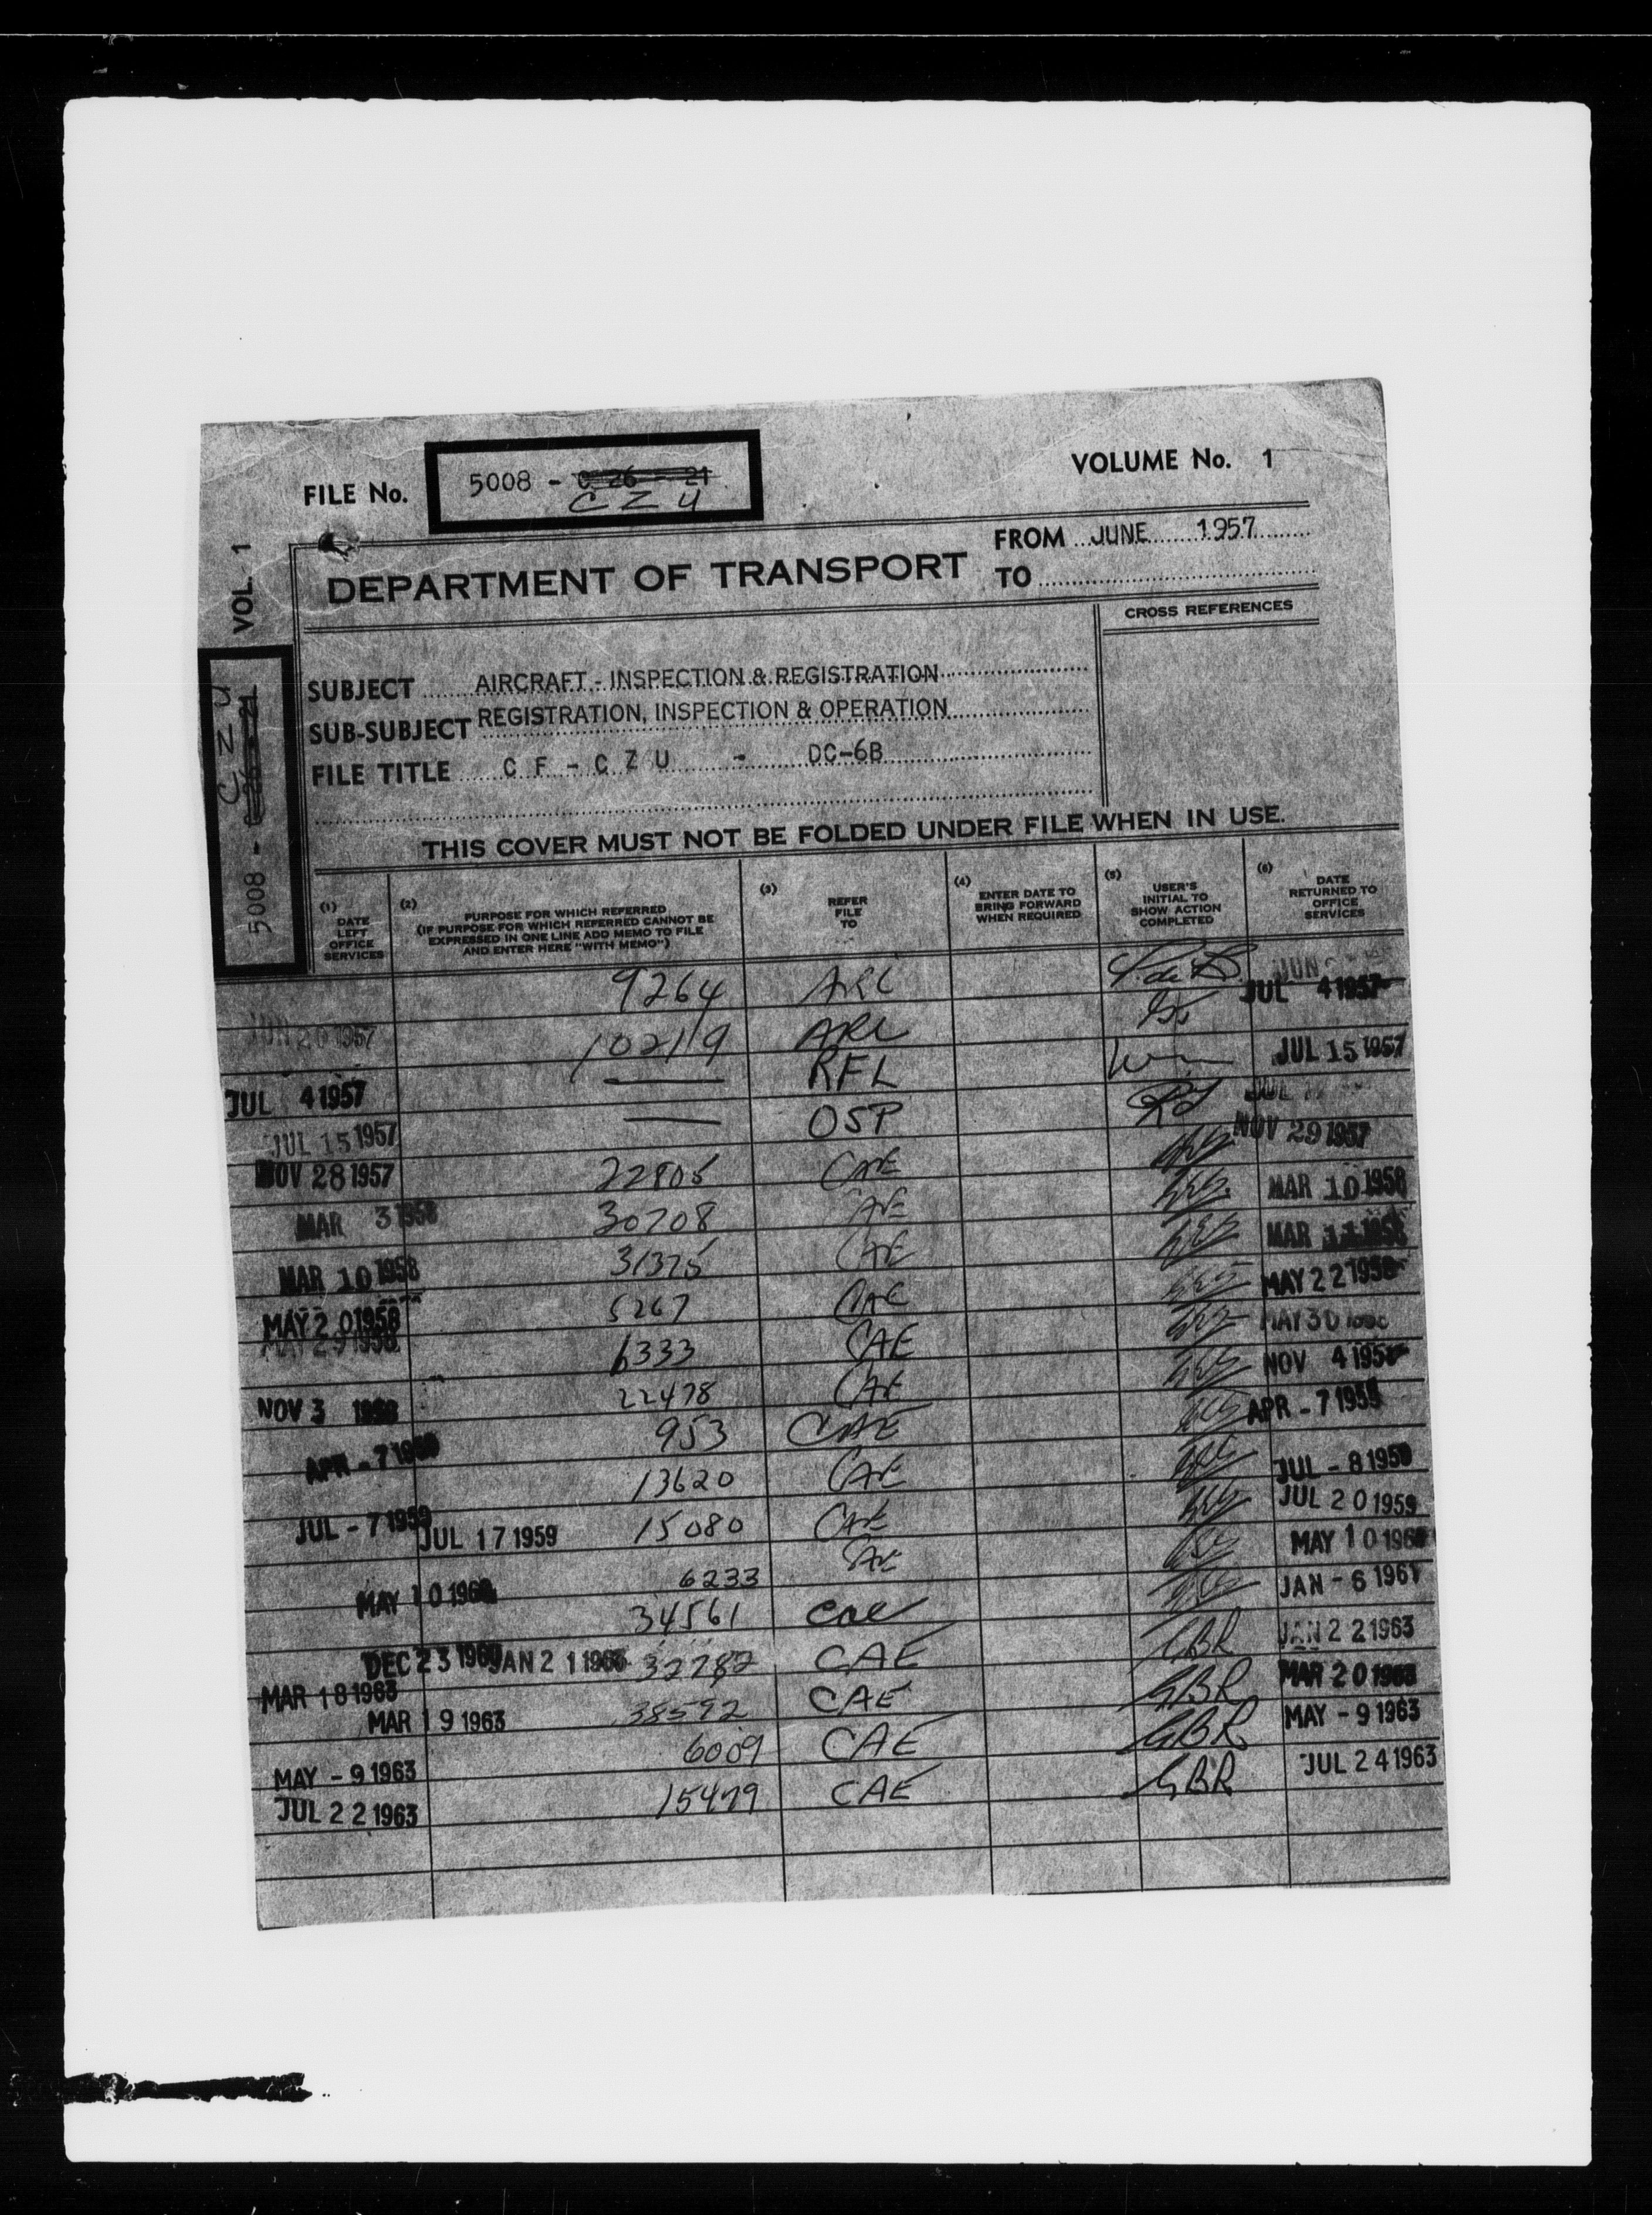 FILE No. 5008 - C-26-21 VOLUME No. 1
CZU
VOL. 1
FROM JUNE 1957
DEPARTMENT OF TRANSPORT TO
CROSS REFERENCES
5008 - C-26-21
CZU
SUBJECT AIRCRAFT - INSPECTION & REGISTRATION
SUB-SUBJECT REGISTRATION, INSPECTION & OPERATION
FILE TITLE CF-CZU - DC-6B
THIS COVER MUST NOT BE FOLDED UNDER FILE WHEN IN USE.
(1) DATE LEFT OFFICE SERVICES
(2) PURPOSE FOR WHICH REFERRED (IF PURPOSE FOR WHICH REFERRED CANNOT BE EXPRESSED IN ONE LINE ADD MEMO TO FILE AND ENTER HERE "WITH MEMO")
(3) REFER FILE TO
(4) ENTER DATE TO BRING FORWARD WHEN REQUIRED
(5) USER'S INITIAL TO SHOW ACTION COMPLETED
(6) DATE RETURNED TO OFFICE SERVICES
9264 ARL JUN
JUL 4 1957
JUN 20 1957 10219 ARL
JUL 4 1957 RFL JUL 15 1957
JUL 15 1957 OSP JUL
NOV 28 1957 22805 CAE NOV 29 1957
MAR 3 1958 30708 CAE MAR 10 1958
MAR 10 1958 31375 CAE MAR 11 1958
MAY 20 1958 5267 CAE MAY 22 1958
MAY 29 1958 6333 CAE MAY 30
NOV 3 1958 22478 CAE NOV 4 1958
APR - 7 953 CAE APR - 7 1959
JUL - 7 1959 13620 CAE JUL - 8 1959
JUL 17 1959 15080 CAE JUL 20 1959
MAY 10 1960 6233 CAE MAY 10 1960
DEC 23 1960 34561 CAE JAN - 6 1961
JAN 21 1963 32782 CAE JAN 22 1963
MAR 18 1963
MAR 19 1963 38592 CAE GBR MAR 20 1963
MAY - 9 1963 6009 CAE GBR MAY - 9 1963
JUL 22 1963 15479 CAE GBR JUL 24 1963